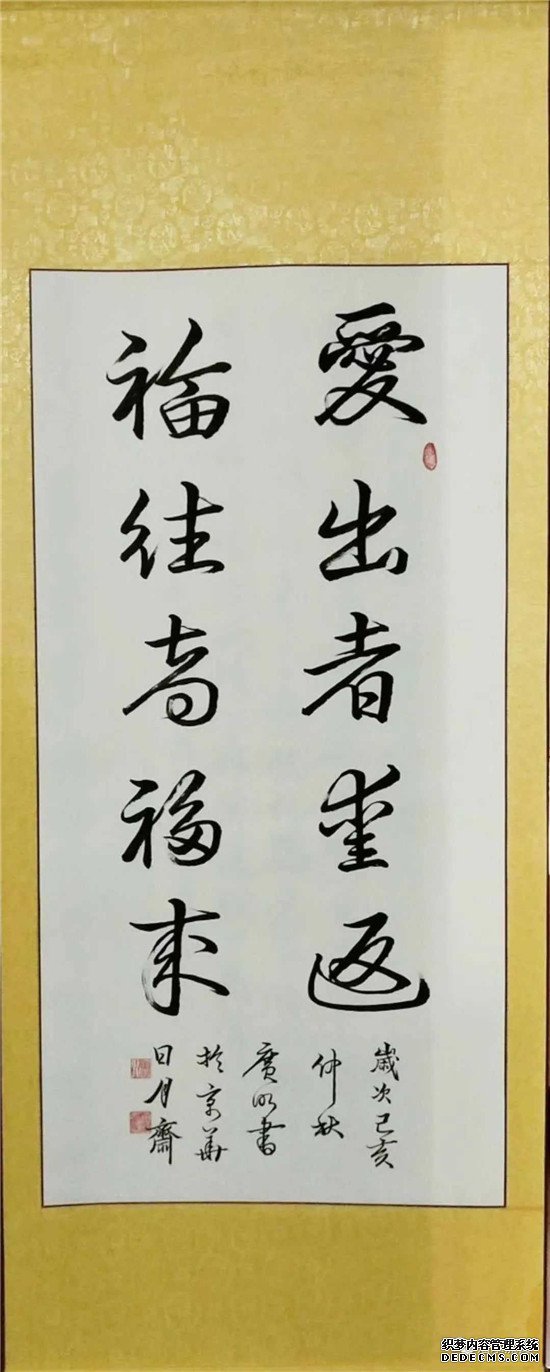 愛出者愛返
福往者福来
歳次己亥
仲秋
廣明書
於京華
日月齋
织梦内容管理系统
DEDECMS.COM